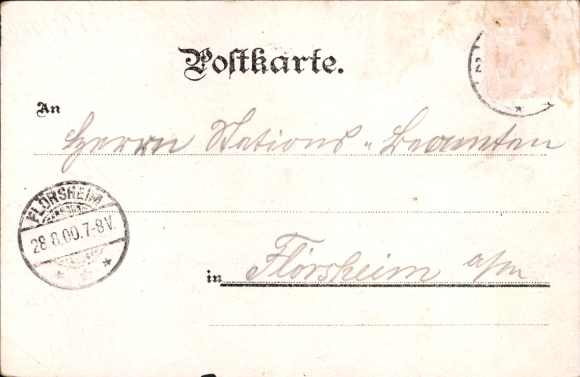 Postkarte.
An
Herrn Stations-Beamten
FLÖRSHEIM
28.8.00.7-8V.
in Flörsheim a/m